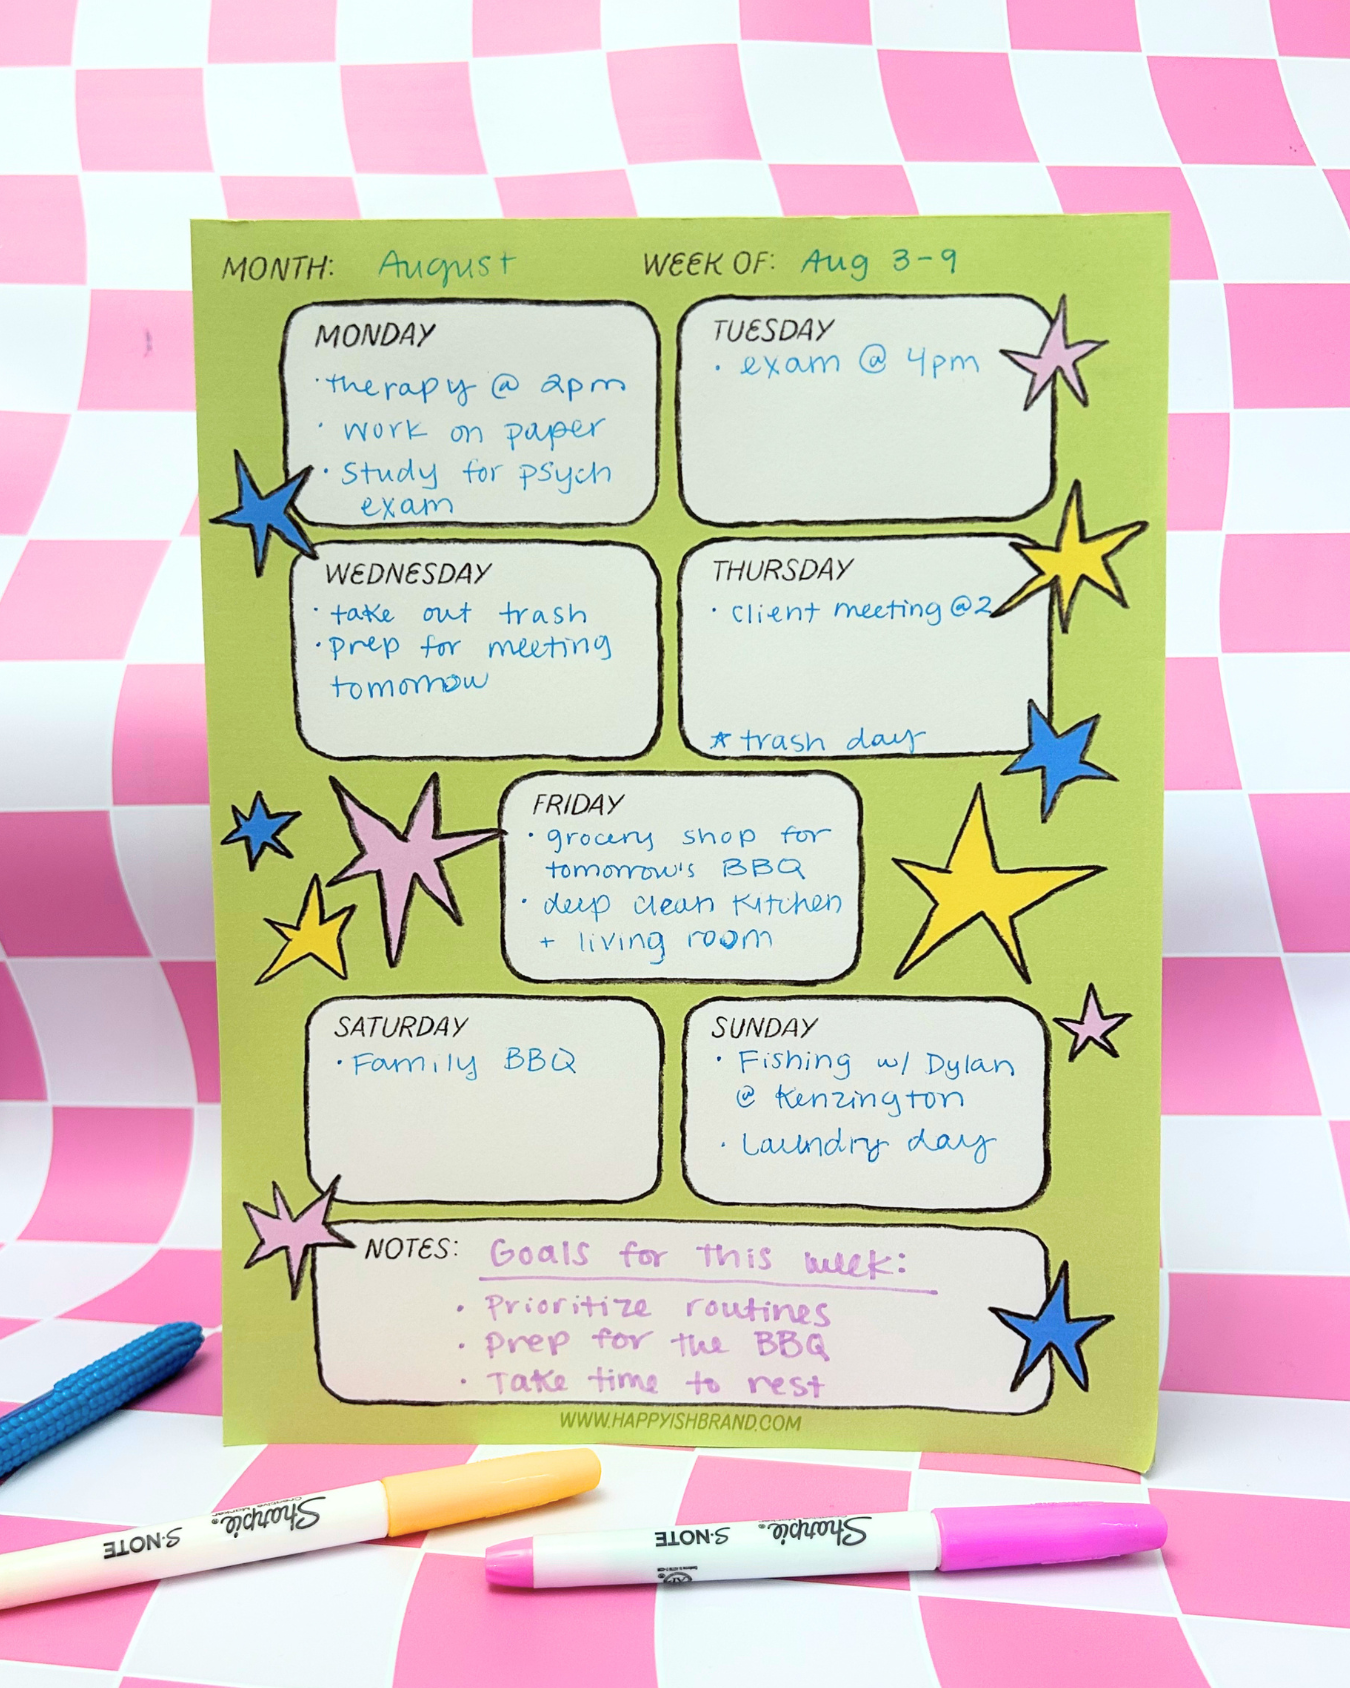 MONTH: August WEEK OF: Aug 3-9
MONDAY
· therapy @ 2pm
· work on paper
· Study for psych
exam
TUESDAY
· exam @ 4pm
WEDNESDAY
· take out trash
· prep for meeting
tomorrow
THURSDAY
· client meeting @2
☆ trash day
FRIDAY
· grocery shop for
tomorrow's BBQ
· deep clean kitchen
+ living room
SATURDAY
· Family BBQ
SUNDAY
· Fishing w/ Dylan
@ Kenzington
· Laundry day
NOTES: Goals for this week:
• Prioritize routines
• Prep for the BBQ
• Take time to rest
WWW.HAPPYISHBRAND.COM
Sharpie®
S·NOTE
Sharpie®
S·NOTE